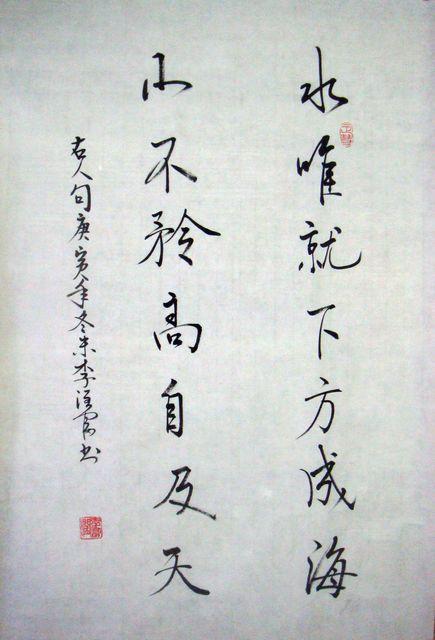 水唯就下方成海
山不矜高自及天
古人句庚寅年冬末李书